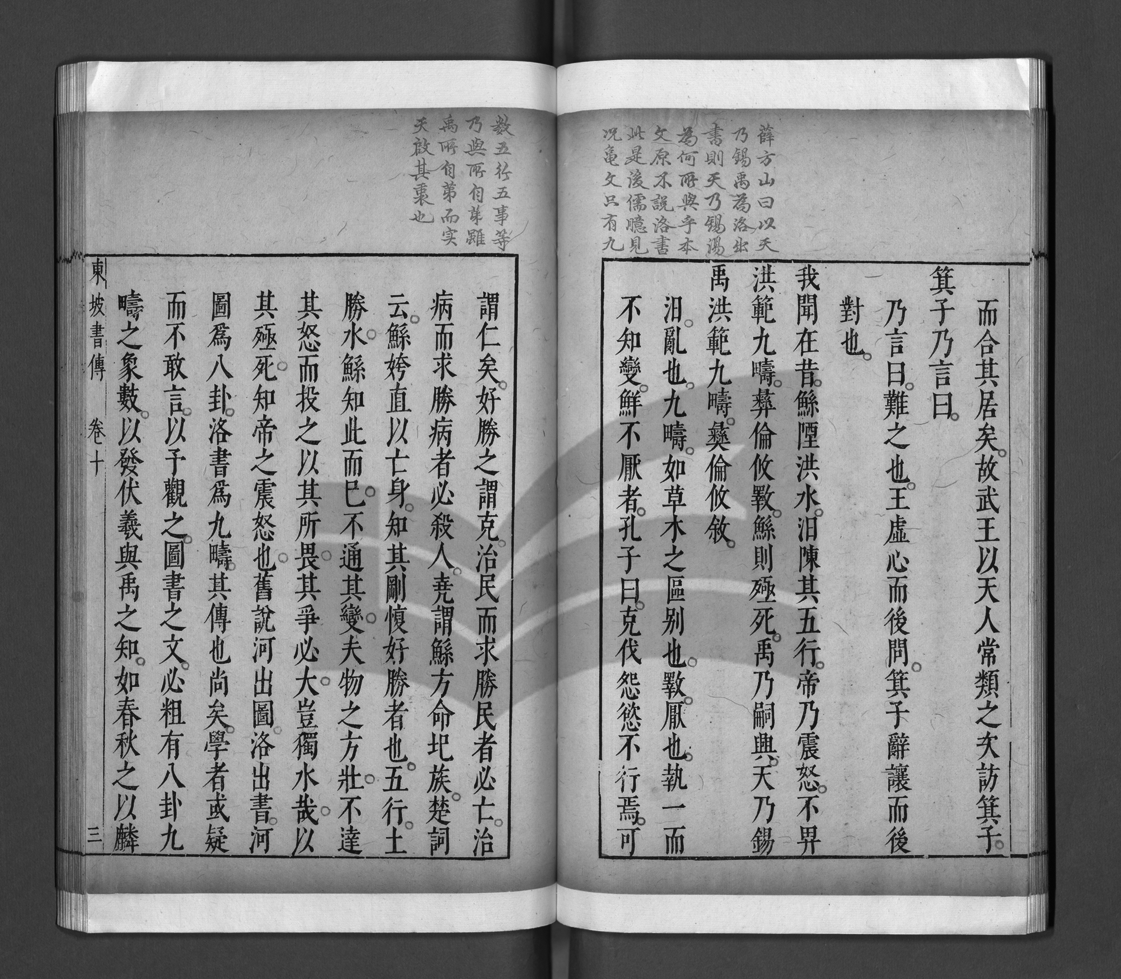 薛方山曰以天
乃錫禹為洛出
書則天乃錫湯
為何所與乎本
文原不說洛書
此是後儒臆見
況龜文只有九
而合其居矣故武王以天人常類之次訪箕子
箕子乃言曰
乃言曰難之也王虛心而後問箕子辭讓而後
對也
我聞在昔鯀陻洪水汩陳其五行帝乃震怒不畀
洪範九疇彝倫攸斁鯀則殛死禹乃嗣興天乃錫
禹洪範九疇彝倫攸敘
汩亂也九疇如草木之區别也斁厭也執一而
不知變鮮不厭者孔子曰克伐怨慾不行焉可
數五行五事等
乃與所自第雖
禹所自第而实
天啟其衷也
謂仁矣好勝之謂克治民而求勝民者必亡治
病而求勝病者必殺人堯謂鯀方命圯族楚詞
云鯀婞直以亡身知其剛愎好勝者也五行土
勝水鯀知此而已不通其變夫物之方壯不達
其怒而投之以其所畏其爭必大豈獨水哉以
其殛死知帝之震怒也舊說河出圖洛出書河
圖爲八卦洛書爲九疇其傳也尚矣學者或疑
而不敢言以予觀之圖書之文必粗有八卦九
疇之象數以發伏羲與禹之知如春秋之以麟
東坡書傳 卷十 三